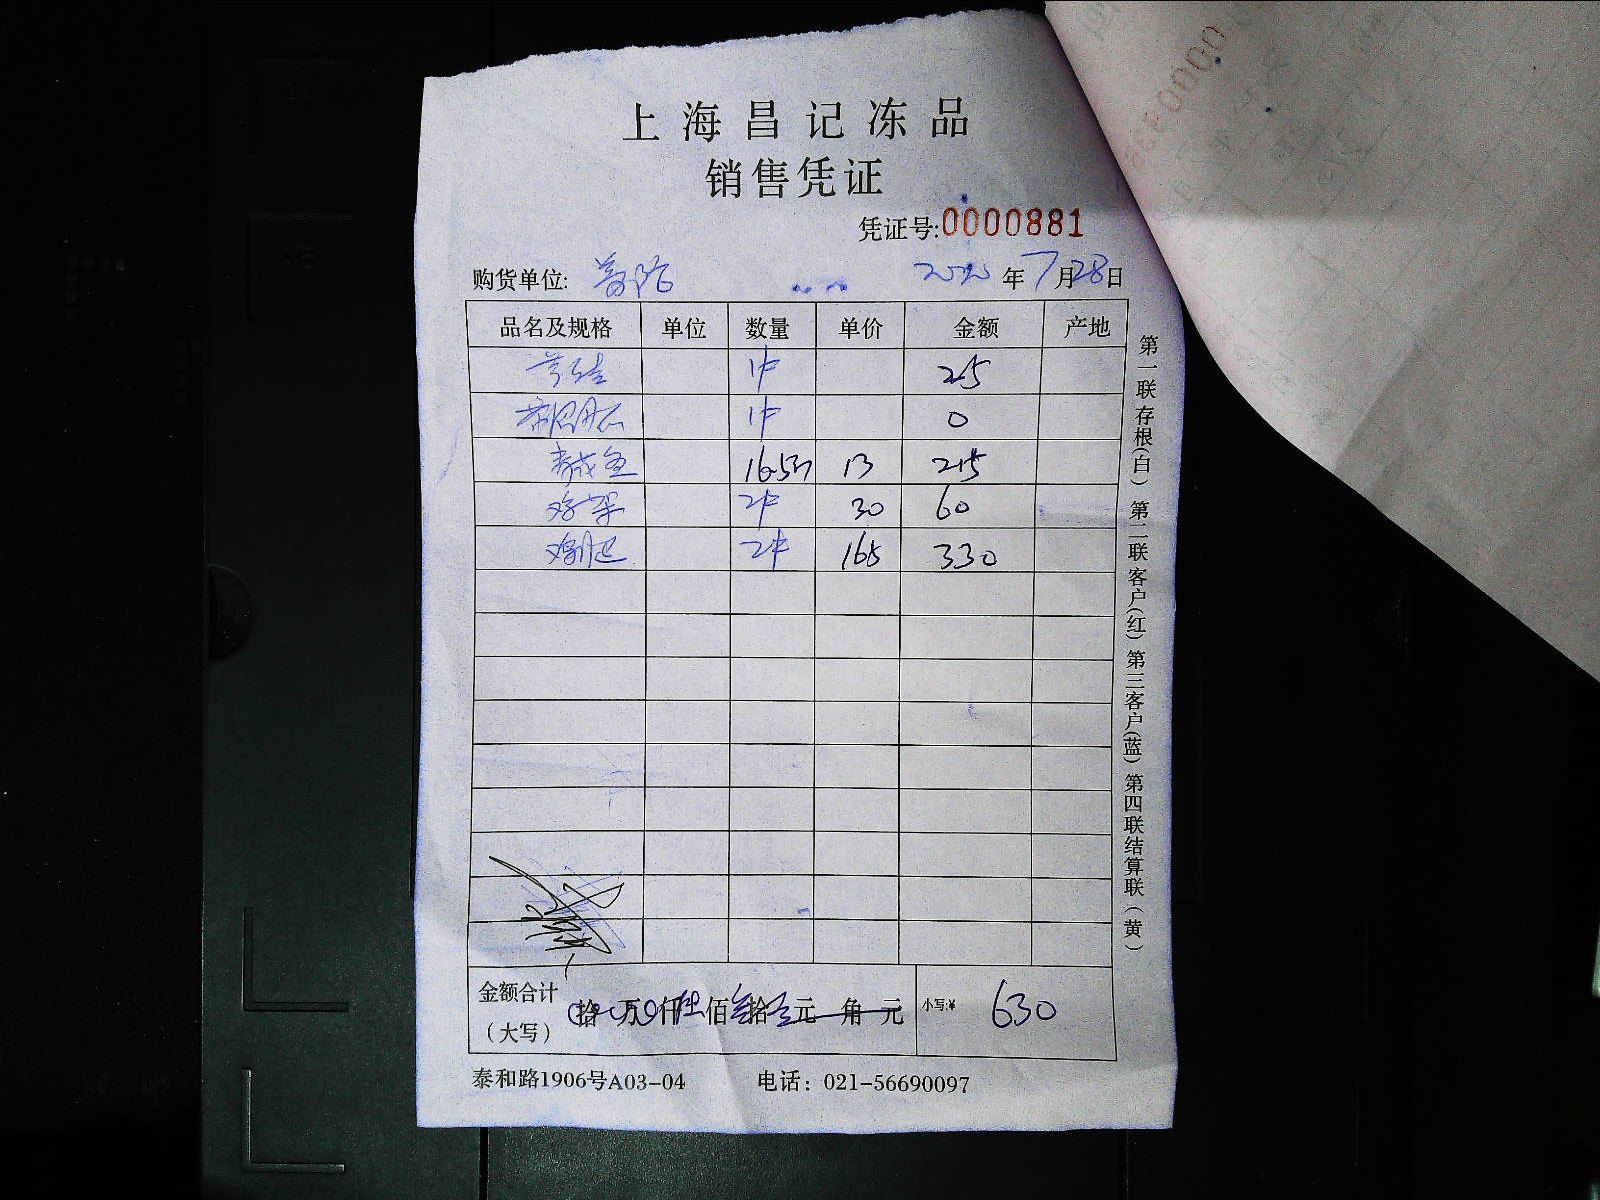 上海昌记冻品
销售凭证
凭证号:0000881
购货单位: 2020年7月28日
品名及规格 单位 数量 单价 金额 产地
1件 25
1件 0
16.5斤 13 215
鸡架 2件 30 60
2件 165 330
金额合计 拾万仟陆佰叁拾元角元 小写:¥ 630
（大写）
泰和路1906号A03-04 电话：021-56690097
第一联存根(白) 第二联客户(红) 第三客户(蓝) 第四联结算联(黄)
0000880